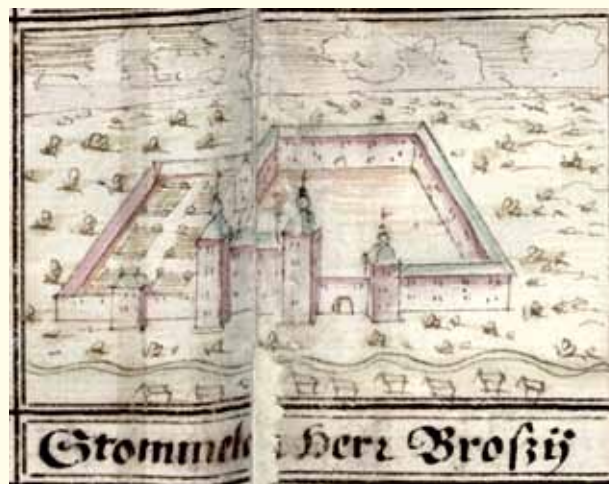 Stommele Herr Broſzÿ